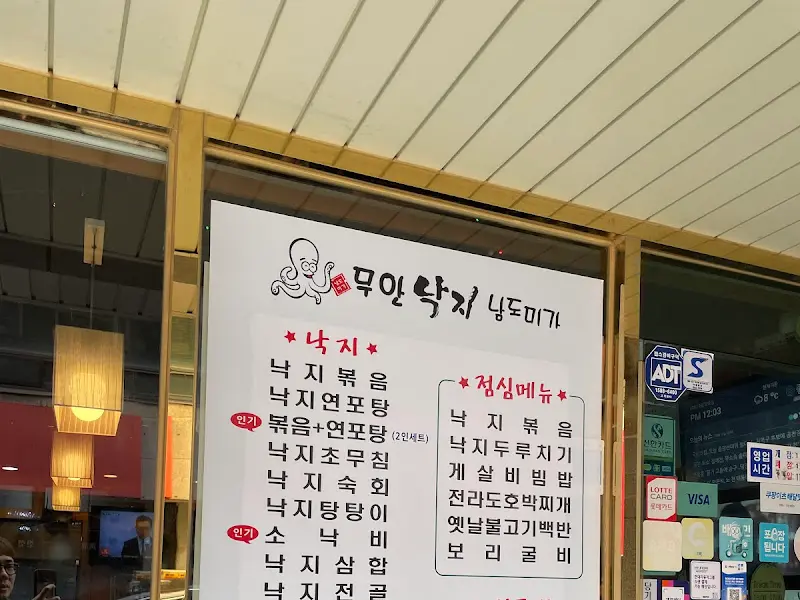 무안낙지 남도미가
★낙지★
낙지볶음
낙지연포탕
인기 볶음+연포탕 (2인세트)
낙지초무침
낙지숙회
낙지탕탕이
인기 소낙비
낙지삼합
낙지전골
★점심메뉴★
낙지볶음
낙지두루치기
게살비빔밥
전라도호박찌개
옛날불고기백반
보리굴비
ADT
S
8°c
PM 12:03
신한카드
영업
시간
LOTTE
CARD
롯데카드
VISA
포장
됩니다